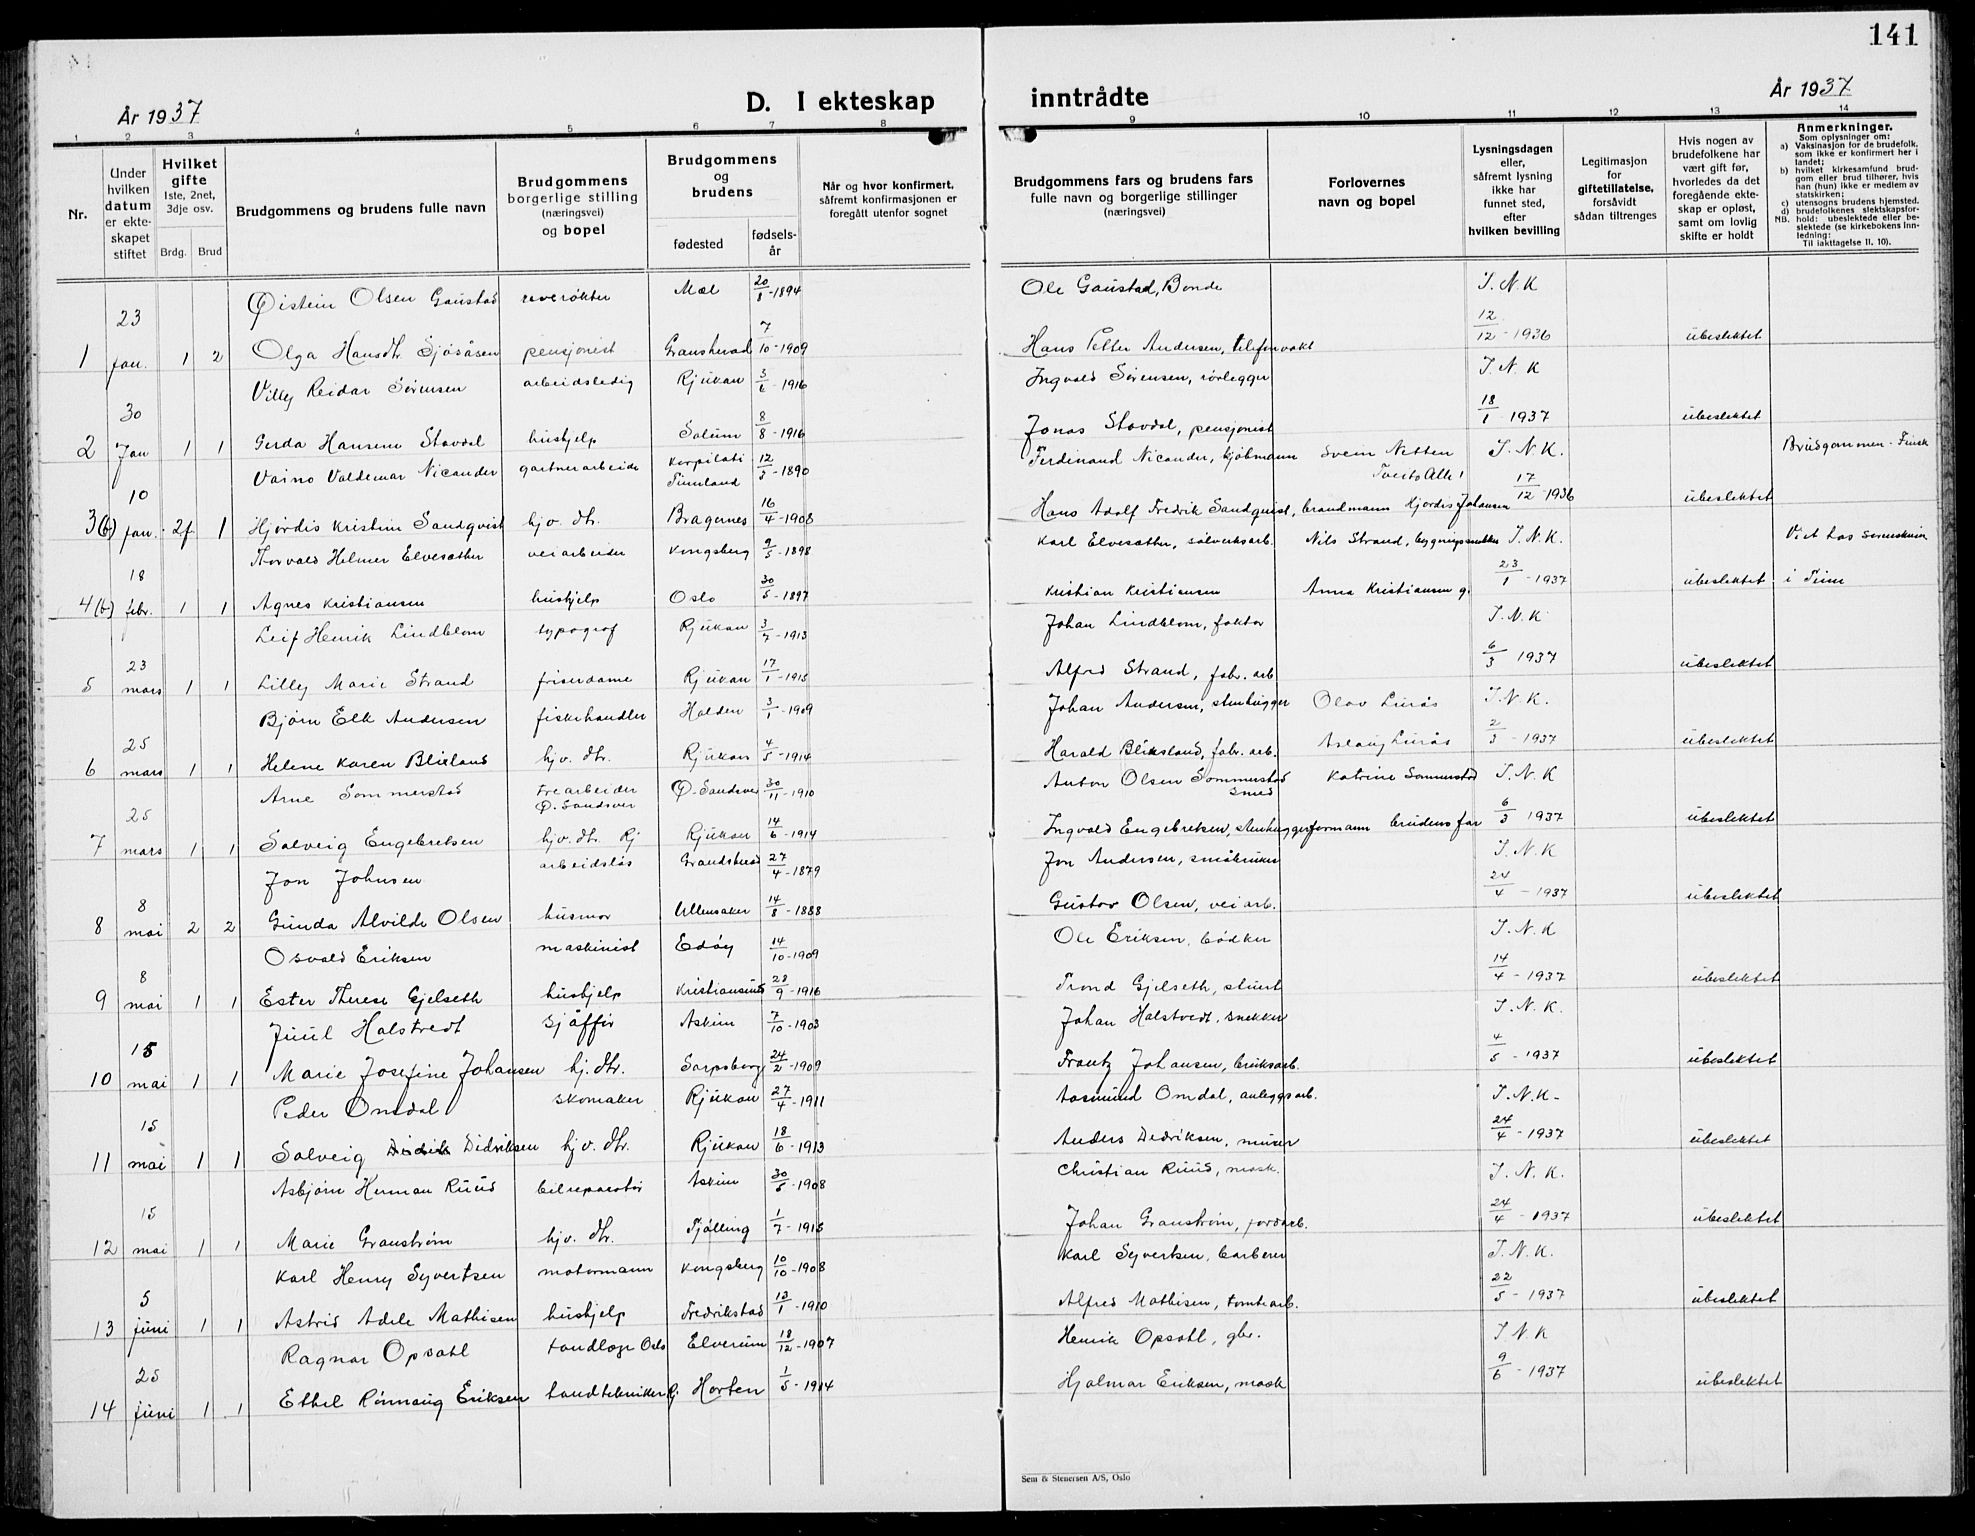 141
År 1937
D. I ekteskap inntrådte
År 1937
1 2 3 4 5 6 7 8 9 10 11 12 13 14
Nr.
Under hvilken datum er ekteskapet stiftet
Hvilket gifte
1ste, 2net, 3dje osv.
Brdg. Brud
Brudgommens og brudens fulle navn
Brudgommens borgerlige stilling (næringsvei) og bopel
Brudgommens og brudens
fødested
fødselsår
Når og hvor konfirmert, såfremt konfirmasjonen er foregått utenfor sognet
Brudgommens fars og brudens fars fulle navn og borgerlige stillinger (næringsvei)
Forlovernes navn og bopel
Lysningsdagen eller, såfremt lysning ikke har funnet sted, efter hvilken bevilling
Legitimasjon for giftetillatelse, forsåvidt sådan tiltrenges
Hvis nogen av brudefolkene har vært gift før, hvorledes da det foregående ekteskap er opløst, samt om lovlig skifte er holdt
Anmerkninger.
Som oplysninger om:
a) Vaksinasjon for de brudefolk, som ikke er konfirmert her i landet;
b) hvilket kirkesamfund brudgom eller brud tilhører, hvis han (hun) ikke er medlem av statskirken;
c) utensogns brudens hjemsted.
d) brudefolkenes slektskapsforhold: ubeslektede eller beslektede (se kirkebokens innledning:
NB. Til iakttagelse II. 10).
Øistein Olsen Gaustad reverøkter Mæl 20/8-1894 Ole Gaustad, Bonde I.N.K
1 23 jan. 1 2 Olga Hansdtr. Sjøsåsen pensjonist Gransherad 7/10-1909 Hans Petter Andersen, telefonvakt 12/12-1936 ubeslektet
Villy Reidar Sørensen arbeidsledig Rjukan 3/6-1916 Ingvald Sørensen, rørlegger I.N.K
2 30 Jan 1 1 Gerda Hansine Stavdal hushjelp Solum 8/8-1916 Jonas Stavdal, pensjonist 18/1 1937 ubeslektet
Vaino Valdemar Nicander gartnerarbeide Korpilati Finnland 12/3-1890 Ferdinand Nicander, kjøbmann Svein Netten I.N.K. Brudgommen Finsk
3(b) 10 jan. 2f. 1 Hjørdis Kristine Sandqvist hjv. dtr. Bragernes 16/4-1908 Hans Adolf Fredrik Sandqvist, brandmann Hjørdis Johansen 17/12-1936 ubeslektet
Thorvald Helmer Elvesæther veiarbeider Kongsberg 9/5-1898 Karl Elvesæther, sølvverksarb. Nils Strand, bygningssnekker I.N.K. Viet hos sorenskriv
4(b) 18 febr. 1 1 Agnes Kristiansen hushjelp Oslo 30/5-1897 Kristian Kristiansen Anna Kristiansen g. 23/1-1937 ubeslektet i Tinn
Leif Henrik Lindblom typograf Rjukan 3/7-1913 Johan Lindblom, faktor I.N.K
5 23 mars 1 1 Lilly Marie Strand friserdame Rjukan 17/1-1915 Alfred Strand, fabr. arb 6/3 1937 ubeslektet
Bjørn Elk Andersen fiskehandler Halden 3/1-1909 Johan Andersen, stenhugger Olav Lurås I.N.K.
6 25 mars 1 1 Helene Karen Blixland hjv. dtr. Rjukan 4/5-1914 Harald Bliksland, fabr. arb. Aslaug Lurås 2/3-1937 ubeslektet
Arne Sommerstad trearbeider Ø. Sandsver Ø. Sandsver 30/11-1910 Anton Olsen Sommerstad smed Katrine Sommerstad I.N.K
7 25 mars 1 1 Solveig Engebretsen hjv. dtr. Rj Rjukan 14/6-1914 Ingvald Engebretsen, stenhuggerformann brudens far 6/3 1937 ubeslektet
Jon Johnsen arbeidsløs Grandsherad 27/4-1879 Jon Andersen, småbruker I.N.K
8 8 mai 2 2 Gunda Alvilde Olsen husmor Ullensaker 14/8-1888 Gustav Olsen, veiarb. 24/4-1937 ubeslektet
Osvald Eriksen maskinist Edøy 14/10-1909 Ole Eriksen, bødker I.N.K
9 8 mai 1 1 Ester Therese Gjelseth hushjelp Kristiansund 28/9-1916 Trond Gjelseth, stuert 14/4-1937 ubeslektet
Juul Halstvedt sjåffør Askim 7/10-1903 Johan Halstvedt, snekker I.N.K.
10 15 mai 1 1 Marie Josefine Johansen hj. dtr. Sarpsborg 24/2-1909 Frantz Johansen, bruksarb. 4/5-1937 ubeslektet
Peder Omdal skomaker Rjukan 27/4-1911 Aasmund Omdal, anleggsarb. I.N.K.
11 15 mai 1 1 Solveig Didrik Didriksen hjv. dtr. Rjukan 18/6-1913 Anders Dedriksen, murer 24/4-1937 ubeslektet
Asbjørn Herman Ruud bilreparatør Askim 30/5-1908 Christian Ruud, mask. I.N.K.
12 15 mai 1 1 Marie Granstrøm hjv. dtr. Tjølling 1/7-1915 Johan Granstrøm, jordarb. 24/4-1937 ubeslektet
Karl Henry Syvertsen motormann Kongsberg 10/10-1908 Karl Syvertsen, barberer I.N.K.
13 5 juni 1 1 Astrid Adele Mathisen hushjelp Fredrikstad 13/1-1910 Alfred Mathisen, tomtearb. 22/5-1937 ubeslektet
Ragnar Opsahl tandlæge Oslo Elverum 18/12-1907 Henrik Opsahl, gbr. I.N.K
14 25 juni 1 1 Ethel Rønnaug Eriksen tandtekniker Rj Horten 1/5-1914 Hjalmar Eriksen, mask 9/6-1937 ubeslektet
Sem & Stenersen A/S, Oslo